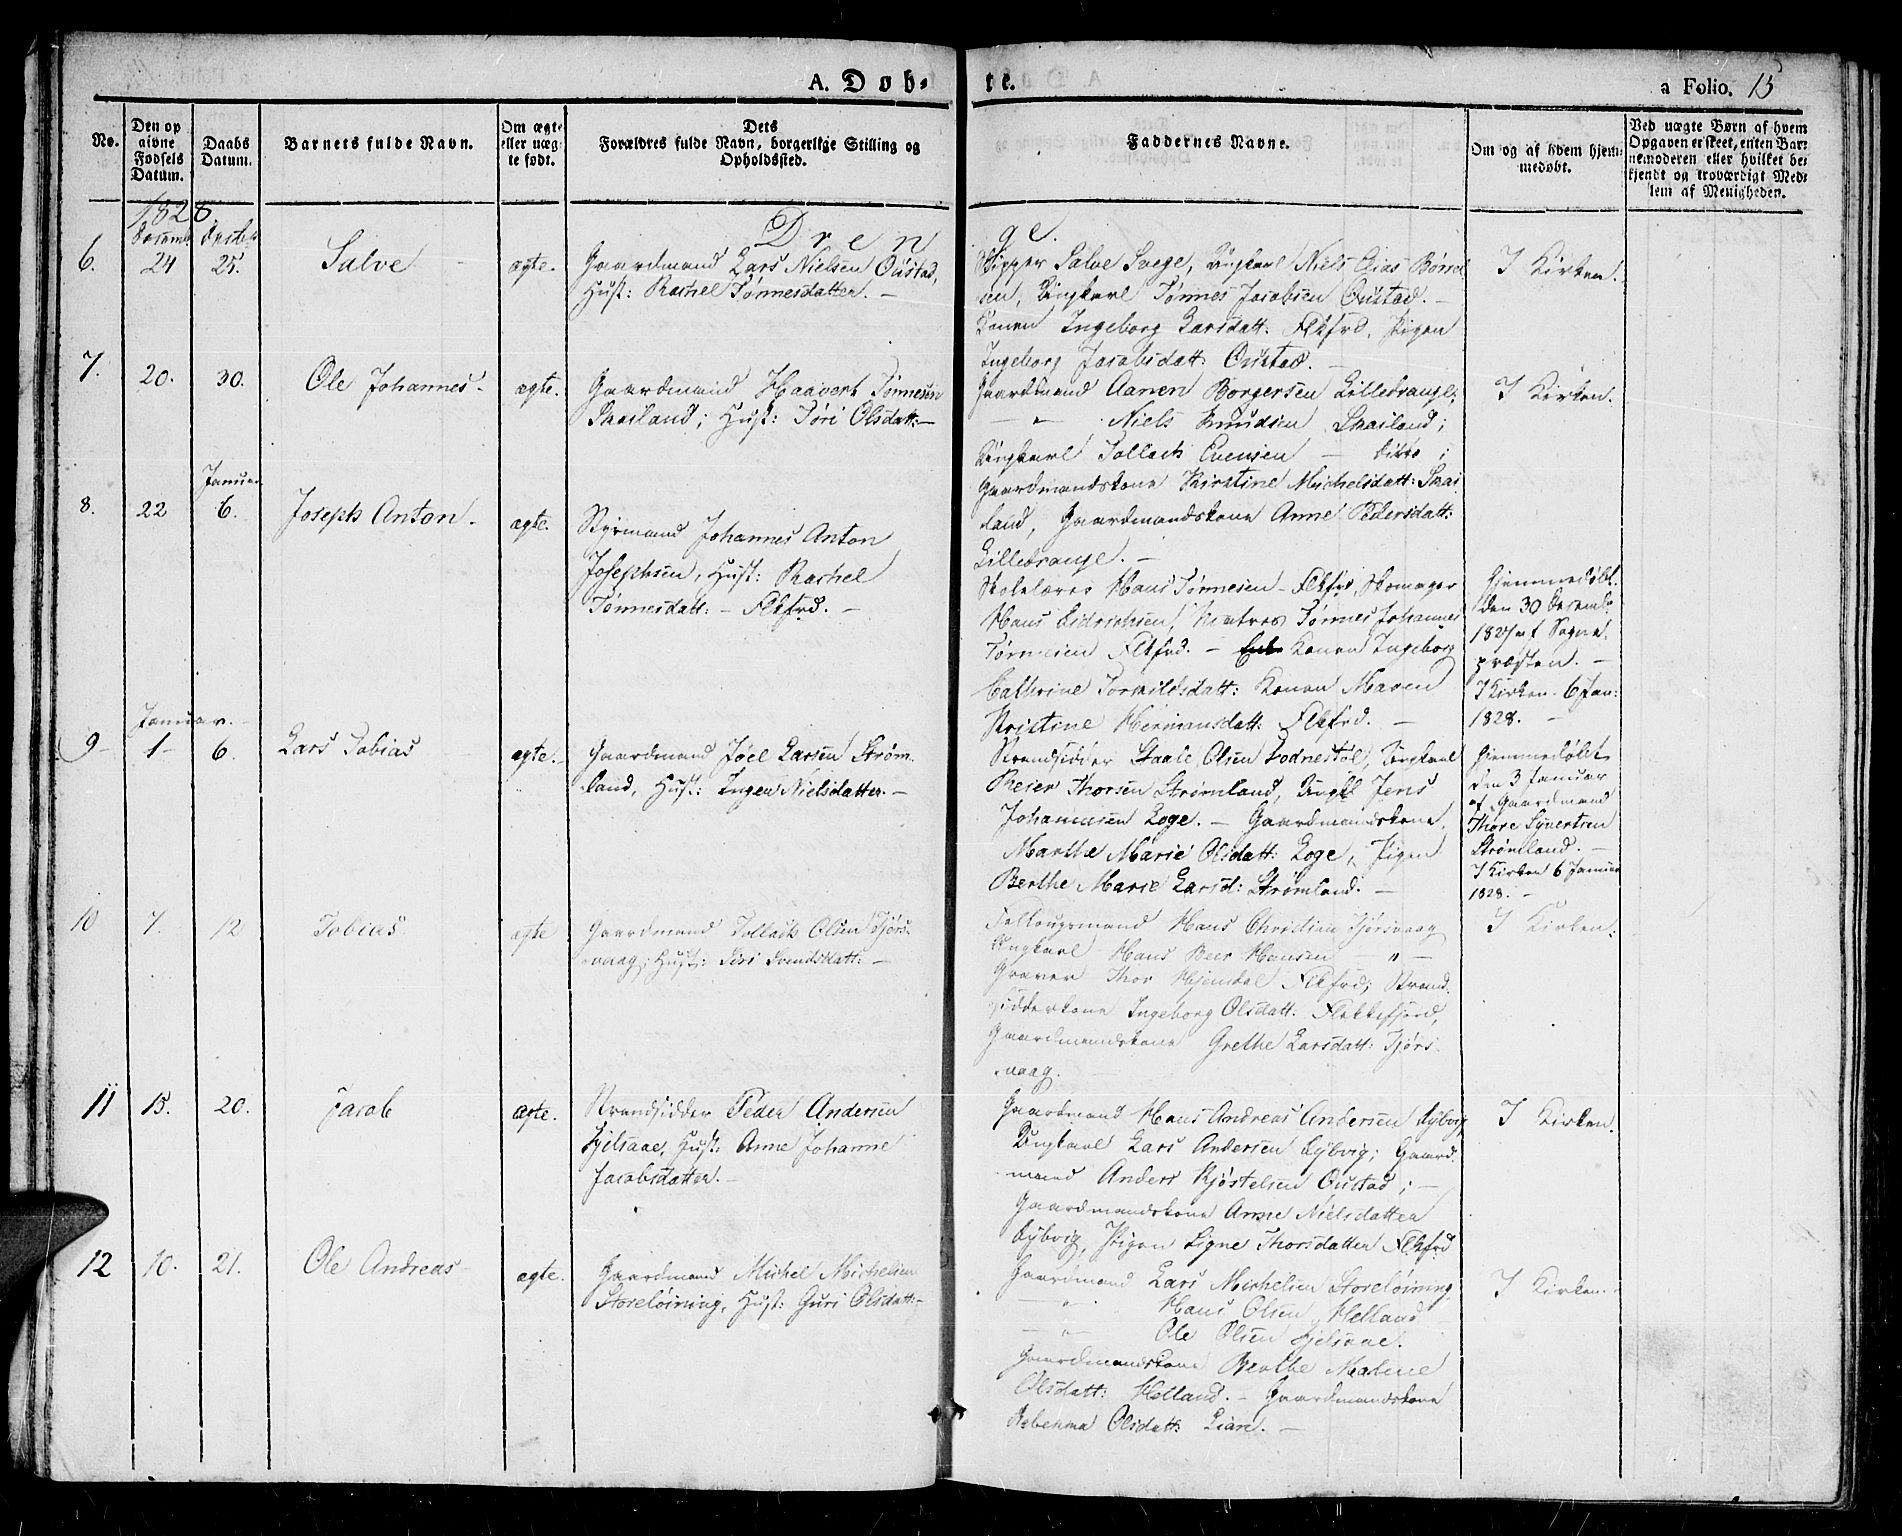 A. Døb-
te.
a Folio. 15
No.
Den op
givne
Fødsels
Datum.
Daabs
Datum.
Barnets fulde Navn.
Om ægte
eller uæg-
te født.
Dets
Forældres fulde Navn, borgerlige Stilling og
Opholdssted.
Faddernes Navne.
Om og af hvem hjem-
medøbt.
Ved uægte Børn af hvem
Opgaven er skeet, enten Bar-
nemoderen eller hvilket be-
kjendt og troværdigt Med-
lem af Menigheden.
1828.
Dren
ge.
6.
24
25.
Salve
ægte.
Gaardmand Lars Nielsen Oustad,
Hust: Rachel Tønnesdatter. -
Skipper Salve Svege, Ungkarl Niels Elias
sen, Ungkarl Tønnes Jacobsen Oustad. -
Konen Ingeborg Larsdatt: Flkfrd, Pigen
Ingeborg Jacobsdatt: Oustad. -
I Kirken.
7.
20.
30.
Ole Johannes.
ægte.
Gaardmand Haavert Tønnesen
Skailand; Hust: Tøri Olsdatt: -
Gaardmand Aanen Borgersen Lilledrange;
- " - Niels Knudsen Skailand;
Ungkarl Tollack Evensen - ditto;
Gaardmandskone Kirstine Michelsdatt: Skai
land, Gaardmandskone Anne Pedersdatt:
Lilledrange. -
I Kirken.
Januar
8.
22
6.
Joseph Anton.
ægte.
Styrmand Johannes Anton
Josephsen, Hust: Rachel
Tønnesdatt: - Flkfrd. -
Skolelærer Hans Tønnesen - Flkfrd, Skomager
Hans Didrichsen, Matros Tønnes Johannes
Tønnesen Flkfrd. - Konen Ingeborg
Cathrine Torkildsdatt: Konen Maren
Kristine Hermansdatt: Flkfrd. -
Hjemmedøbt
den 30 Decemb
1827 af Sogne
præsten. -
I Kirken 6 Jan:
1828. -
Januar. -
9 -
1 -
6.
Lars Tobias
ægte. -
Gaardmand Joel Larsen Strøm-
land, Hust: Inger Nielsdatter. -
Strandsidder Staale Olsen Lodnestøl, Ungkarl
Reier Thorsen Strømland, Ungkl Jens
Johannesen Loge. - Gaardmandskone
Marthe Marie Olsdatt: Loge, Pigen
Berthe Marie Larsd: Strømland. -
Hjemmedøbt
den 3 Januar
af Gaardmand
Thore Syvertsen
Strømland. -
I Kirken 6 Januar
1828. -
10
7.
12
Tobias
ægte
Gaardmand Tollack Olsen Tjørs-
vaag; Hust: Siri Svendsdatt: -
Hans Christian Tjørsvaag
Ungkarl Hans Beer Hansen " -
Graver Thor Hjemdal Flkfrd; Strand-
sidderkone Ingeborg Olsdatt: Flekkefjord,
Gaardmandskone Grethe Larsdatt: Tjørs-
vaag.
I Kirken.
11
15.
20.
Jacob
ægte.
Strandsidder Peder Andersen
Hust: Anne Johanne
Jacobsdatter. -
Gaardmand Hans Andreas Andersen Dybvig,
Ungkarl Lars Andersen Dybvig; Gaard-
mand Anders Kjøstelsen Oustad; -
Gaardmandskone Anne Nielsdatter
Dybvig, Pigen Signe Thorsdatter Flkfrd
I Kirken.
12
10.
21.
Ole Andreas
ægte.
Gaardmand Michel Michelsen
Storeløining, Hust: Guri Olsdatt: -
Gaardmand Lars Michelsen Storeløining
- " - Hans Olsen Helland
- " - Ole Olsen
Gaardmandskone Berthe Malene
Olsdatt: Helland. - Gaardmandskone
Olsdatt: Lian. -
I Kirken.